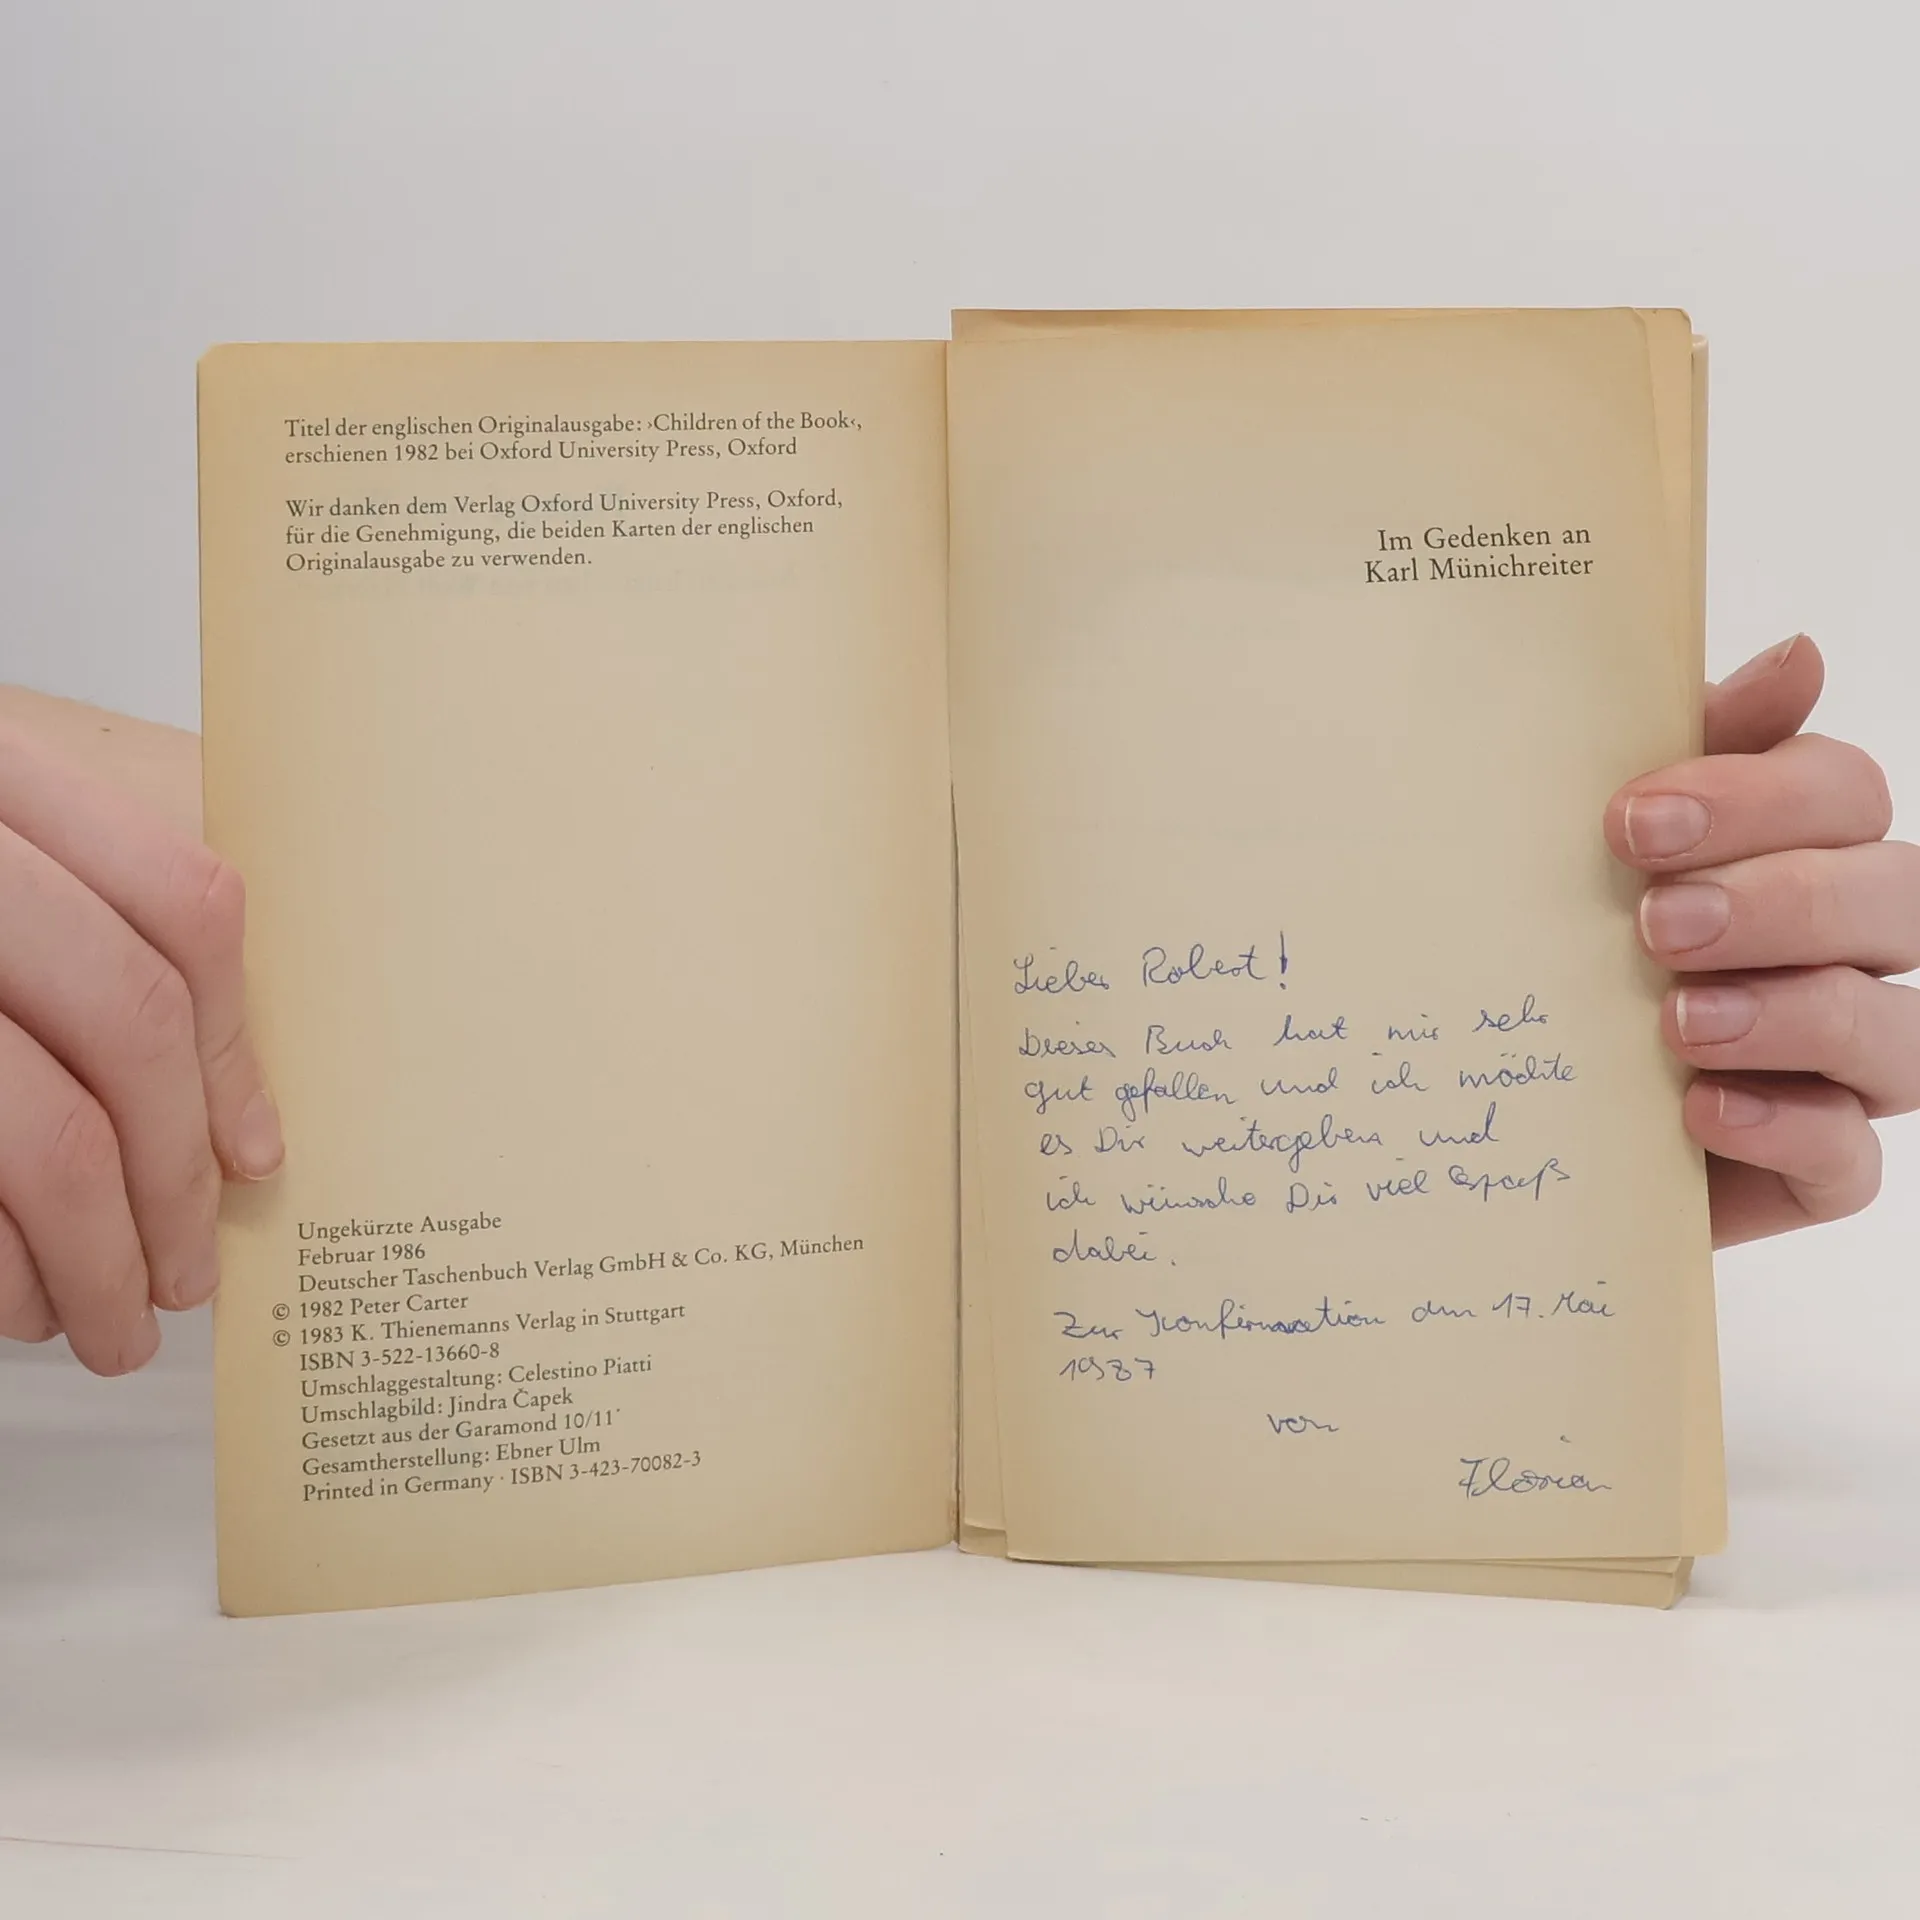 Titel der englischen Originalausgabe: ›Children of the Book‹,
erschienen 1982 bei Oxford University Press, Oxford
Wir danken dem Verlag Oxford University Press, Oxford,
für die Genehmigung, die beiden Karten der englischen
Originalausgabe zu verwenden.
Ungekürzte Ausgabe
Februar 1986
Deutscher Taschenbuch Verlag GmbH & Co. KG, München
© 1982 Peter Carter
© 1983 K. Thienemanns Verlag in Stuttgart
ISBN 3-522-13660-8
Umschlaggestaltung: Celestino Piatti
Umschlagbild: Jindra Čapek
Gesetzt aus der Garamond 10/11˙
Gesamtherstellung: Ebner Ulm
Printed in Germany · ISBN 3-423-70082-3
Im Gedenken an
Karl Münichreiter
Lieber Robert!
Dieses Buch hat mir sehr
gut gefallen und ich möchte
es Dir weitergeben und
ich wünsche Dir viel Spaß
dabei.
Zur Konfirmation am 17. Mai
1987
von
Florian